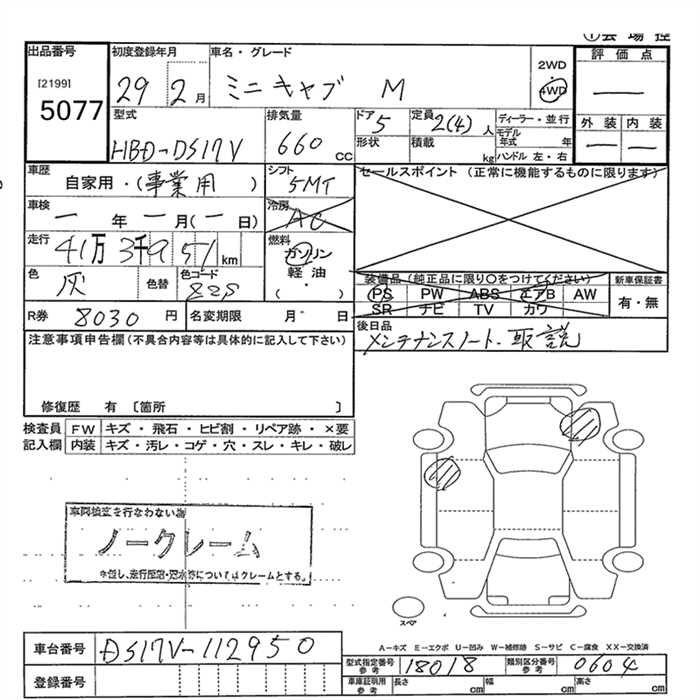 ①会場控
出品番号
[2199]
5077
初度登録年月
29 2月
車名・グレード
ミニキャブ M
2WD
・
4WD
評価点
—
型式
HBD-DS17V
排気量
660 CC
ドア
5
形状
定員
2(4)人
積載
kg
ディーラー・並行
モデル
年式 年
ハンドル 左・右
外装 内装
— —
車歴
自家用・(事業用)
シフト
5MT
セールスポイント (正常に機能するものに限ります)
車検
一年一月(一日)
冷房
AC
走行
41万3千951km
燃料
ガソリン
軽油
(・)
色
灰
色替
色コード
装備品(純正品に限り○をつけてください)
PS PW ABS エアB AW
SR ナビ TV カワ
新車保証書
有・無
R券 8030円
名変期限 月 日
後日品
メンテナンスノート.取説
注意事項申告欄(不具合内容等は具体的に記入して下さい)
修復歴 有 〔箇所 〕
検査員
記入欄
FW キズ・飛石・ヒビ割・リペア跡・×要
内装 キズ・汚レ・コゲ・穴・スレ・キレ・破レ
車両検査を行なわない為
ノークレーム
但し、走行距離・冠水等についてはクレームとする。
スペア
A-キズ E-エクボ U-凹み W-補修跡 S-サビ C-腐食 XX-交換済
車台番号 DS17V-112950
登録番号
型式指定番号
参考
18018
類別区分番号
参考
0604
車庫証明用
参考
長さ cm 幅 cm 高さ cm